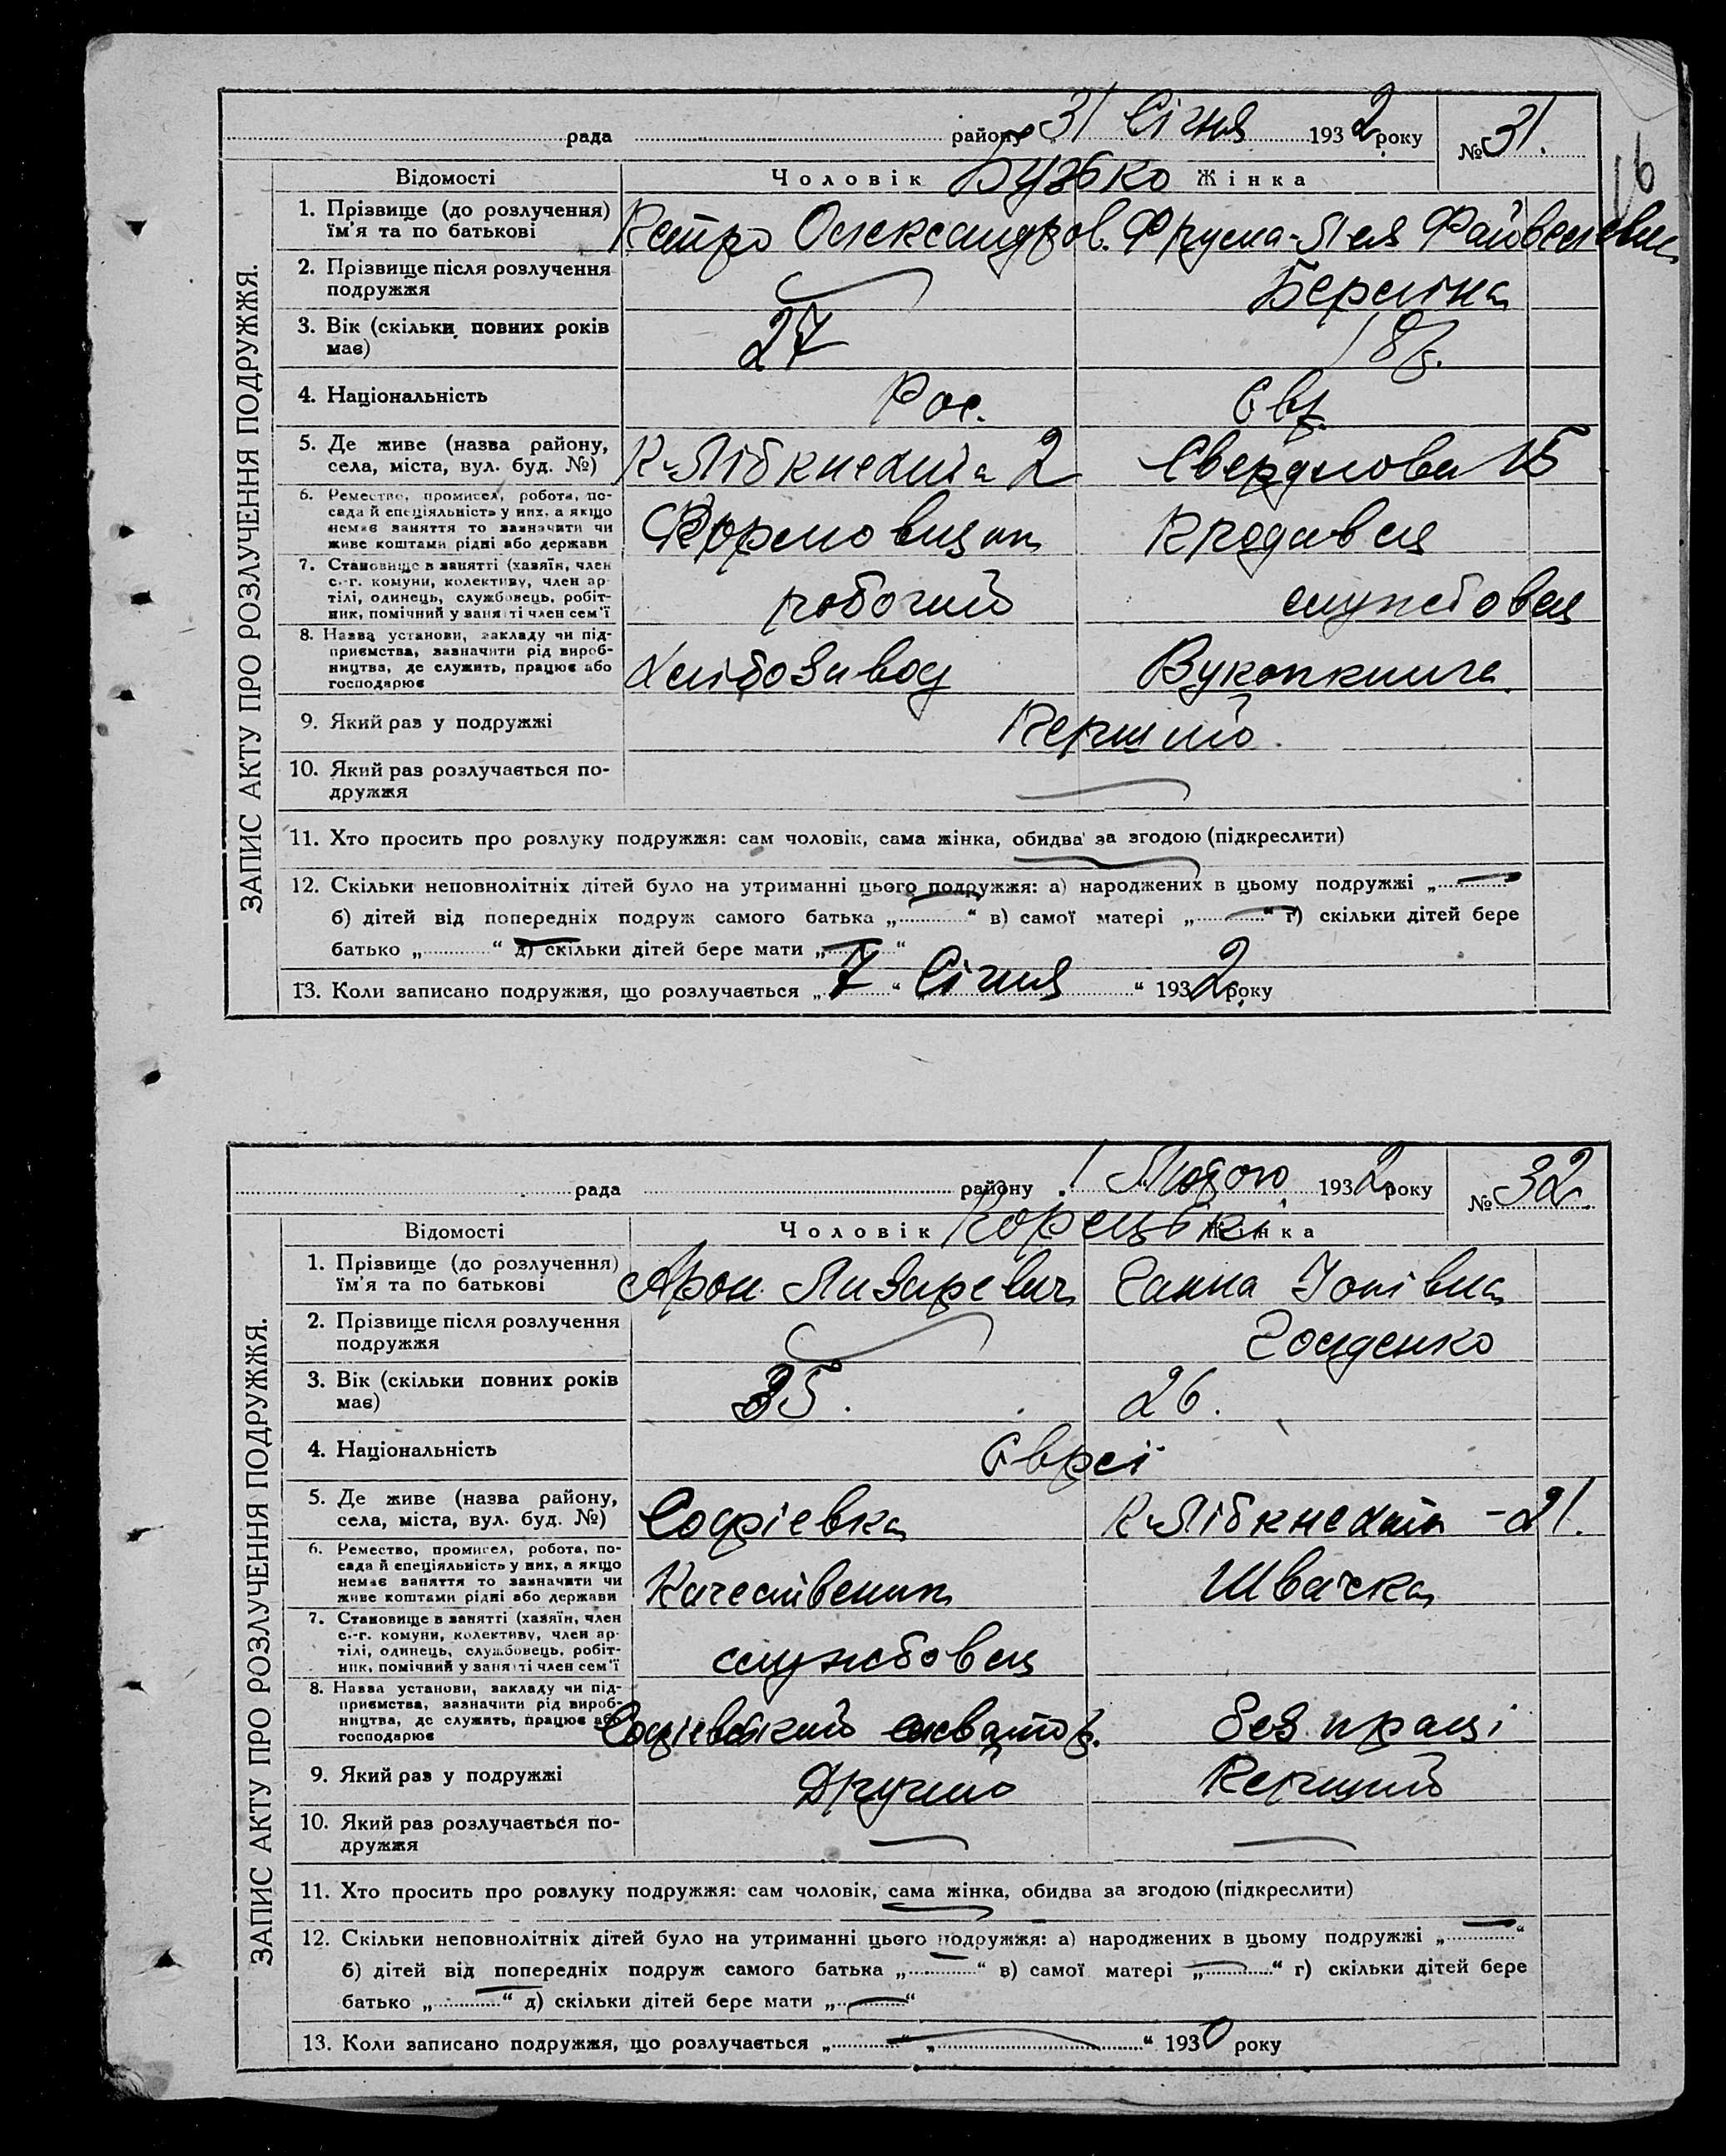 рада района 31 Січня 1932 року № 31.
16
Відомості Чоловік Бузько Жінка
ЗАПИС АКТУ ПРО РОЗЛУЧЕННЯ ПОДРУЖЖЯ.
1. Прізвище (до розлучення)
ім'я та по батькові
Петро Олександров. Фрума-Лея Файвелевна
2. Прізвище після розлучення
подружжя
Берліна
3. Вік (скільки повних років
має)
27 18
4. Національність Рос. Євр.
5. Де живе (назва району,
села, міста, вул. буд. №)
К-Лібкнехта 2 Свердлова 15
6. Ремество, промисел, робота, по-
сада й спеціяльність у них, а якщо
немає заняття то зазначити чи
живе коштами рідні або держави
Формовщик Продавец
7. Становище в занятті (хазяїн, член
с.-г. комуни, колективу, член ар-
тілі, одинець, службовець, робіт-
ник, помічний у занятті член сем'ї
робочий службовец
8. Назва установи, закладу чи під-
приємства, зазначити рід вироб-
ництва, де служить, працює або
господарює
Хлібозавод Вукопкнига
9. Який раз у подружжі Перший.
10. Який раз розлучається по-
дружжя
11. Хто просить про розлуку подружжя: сам чоловік, сама жінка, обидва за згодою (підкреслити)
12. Скільки неповнолітніх дітей було на утриманні цього подружжя: а) народжених в цьому подружжі „
б) дітей від попередніх подруж самого батька „ “ в) самої матері „ “ г) скільки дітей бере
батько „ “ д) скільки дітей бере мати „ “
13. Коли записано подружжя, що розлучається „ 7 “ Січня “ 1932 року
рада району 1 Лютого 1932 року № 32.
Відомості Чоловік Корецькі Жінка
ЗАПИС АКТУ ПРО РОЗЛУЧЕННЯ ПОДРУЖЖЯ.
1. Прізвище (до розлучення)
ім'я та по батькові
Арон Лазаревич Ганна Іонівна
2. Прізвище після розлучення
подружжя
3. Вік (скільки повних років
має)
35. 26.
4. Національність Євреї
5. Де живе (назва району,
села, міста, вул. буд. №)
Софіевка К-Лібкнехта - 21.
6. Ремество, промисел, робота, по-
сада й спеціяльність у них, а якщо
немає заняття то зазначити чи
живе коштами рідні або держави
Качественик Швачка
7. Становище в занятті (хазяїн, член
с.-г. комуни, колективу, член ар-
тілі, одинець, службовець, робіт-
ник, помічний у занятті член сем'ї
службовец
8. Назва установи, закладу чи під-
приємства, зазначити рід вироб-
ництва, де служить, працює або
господарює
Софіевский елеватор. без праці
9. Який раз у подружжі Другий Перший
10. Який раз розлучається по-
дружжя
11. Хто просить про розлуку подружжя: сам чоловік, сама жінка, обидва за згодою (підкреслити)
12. Скільки неповнолітніх дітей було на утриманні цього подружжя: а) народжених в цьому подружжі „ “
б) дітей від попередніх подруж самого батька „ “ в) самої матері „ “ г) скільки дітей бере
батько „ “ д) скільки дітей бере мати „ “
13. Коли записано подружжя, що розлучається „ “ „ “ 1930 року